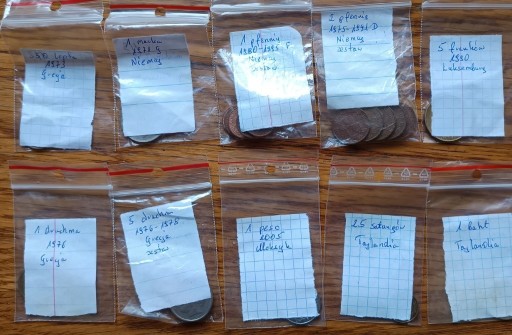 1973
Grecja
1 marka
Niemcy
1 pfennig
Niemcy
zestaw
2 pfennig
Niemcy
zestaw
5 franków
1990
Luksemburg
1 drachma
1976
Grecja
5 drachm
1976-1978
Grecja
zestaw
1 peso
2005
Meksyk
25 satangów
Tajlandia
1 baht
Tajlandia